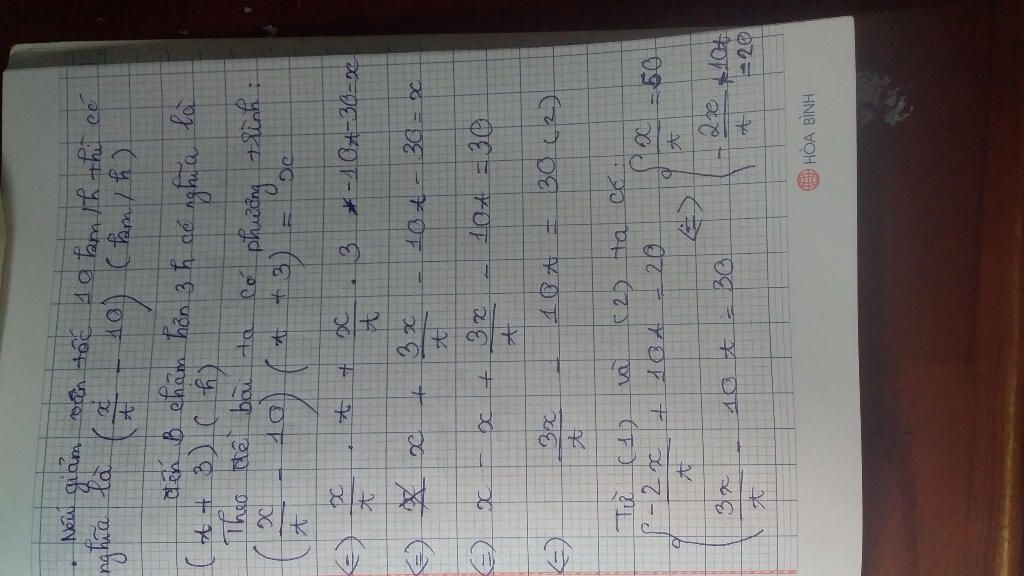 . Nếu giảm vận tốc 10 km/h thì có
nghĩa là (x/t - 10) (km/h)
đến B chậm hơn 3 h có nghĩa là
(t + 3) (h)
Theo đề bài ta có phương trình:
(x/t - 10) (t + 3) = x
(=) x/t . t + x/t . 3 - 10t - 30 = x
(=) x + 3x/t - 10t - 30 = x
(=) x - x + 3x/t - 10t = 30
(=) 3x/t - 10t = 30 (2)
Từ (1) và (2) ta có:
{ -2x/t + 10t = 20 (=) { x/t = 50
3x/t - 10t = 30 -2x/t + 10t = 20
HÒA BÌNH